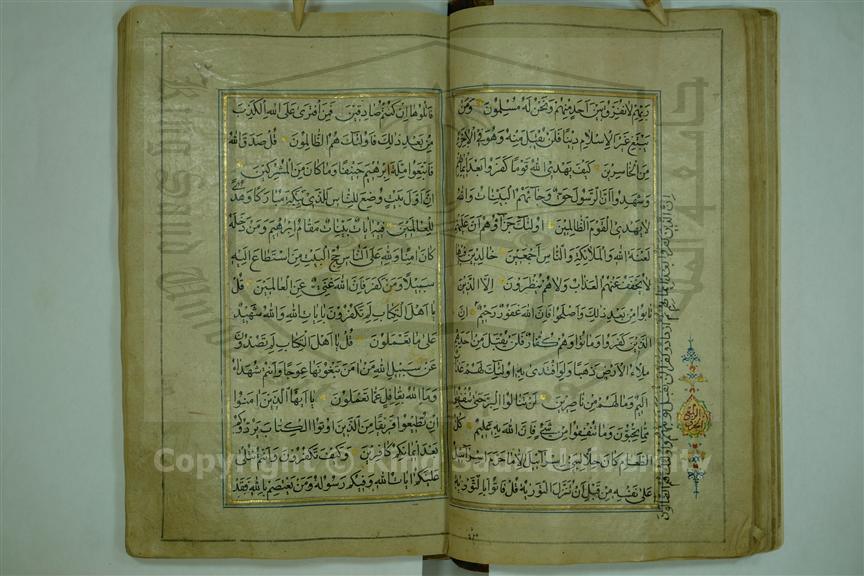 ربهم لا نفرق بين احد منهم ونحن له مسلمون ومن
يبتغ غير الاسلام دينا فلن يقبل منه وهو في الاخرة
من الخاسرين كيف يهدي الله قوما كفروا بعد ايمانهم
وشهدوا ان الرسول حق وجاءهم البينات والله
لا يهدي القوم الظالمين اولئك جزاؤهم ان عليهم
لعنة الله والملائكة والناس اجمعين خالدين فيها
لا يخفف عنهم العذاب ولا هم ينظرون الا الذين
تابوا من بعد ذلك واصلحوا فان الله غفور رحيم ان
الذين كفروا وماتوا وهم كفار فلن يقبل من احدهم
ملء الارض ذهبا ولو افتدى به اولئك لهم عذاب
اليم وما لهم من ناصرين لن تنالوا البر حتى تنفقوا
مما تحبون وما تنفقوا من شيء فان الله به عليم كل
الطعام كان حلا لبني اسرائيل الا ما حرم اسرائيل
على نفسه من قبل ان تنزل التورية قل فاتوا بالتورية
ان الذين كفروا بعد ايمانهم ثم ازدادوا كفرا لن تقبل توبتهم واولئك هم الضالون
فاتلوها ان كنتم صادقين فمن افترى على الله الكذب
من بعد ذلك فاولئك هم الظالمون قل صدق الله
فاتبعوا ملة ابرهيم حنيفا وما كان من المشركين
ان اول بيت وضع للناس للذي ببكة مباركا وهدى
للعالمين فيه ايات بينات مقام ابرهيم ومن دخله
كان امنا ولله على الناس حج البيت من استطاع اليه
سبيلا ومن كفر فان الله غني عن العالمين قل
يا اهل الكتاب لم تكفرون بايات الله والله شهيد
على ما تعملون قل يا اهل الكتاب لم تصدون
عن سبيل الله من امن تبغونها عوجا وانتم شهداء
وما الله بغافل عما تعملون يا ايها الذين امنوا
ان تطيعوا فريقا من الذين اوتوا الكتاب يردوكم
بعد ايمانكم كافرين وكيف تكفرون وانتم تتلى
عليكم ايات الله وفيكم رسوله ومن يعتصم بالله فقد
Copyright © King Saud University
King Saud University